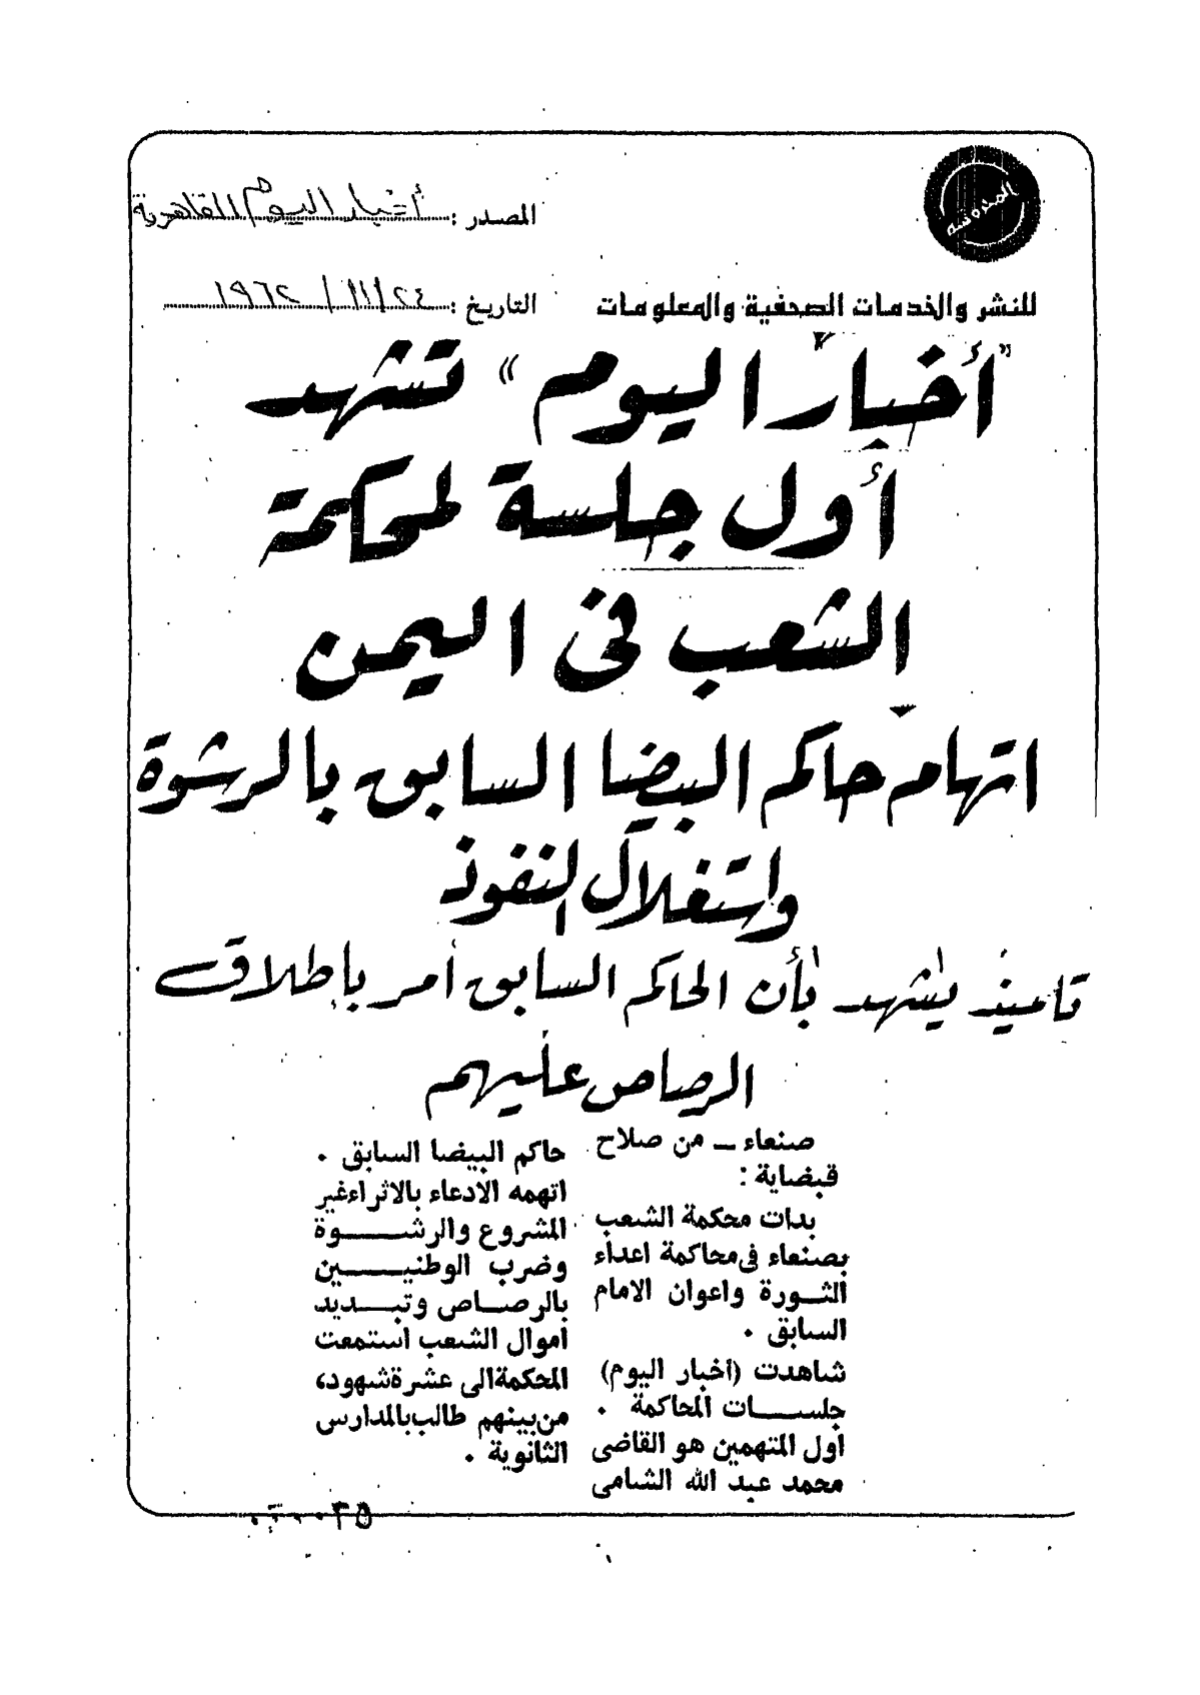 المصدر : أخبار اليوم القاهرية
للنشر والخدمات الصحفية والمعلومات
التاريخ : ٢٤ / ١١ / ١٩٦٢
"أخبار اليوم" تشهد
أول جلسة لمحكمة
الشعب فى اليمن
اتهام حاكم البيضا السابق بالرشوة
واستغلال النفوذ
يشهد بأن الحاكم السابق أمر بإطلاق
الرصاص عليهم
صنعاء ـ من صلاح
قبضاية :
بدات محكمة الشعب
بصنعاء فى محاكمة اعداء
الثورة واعوان الامام
السابق .
شاهدت (اخبار اليوم)
جلسات المحاكمة .
اول المتهمين هو القاضى
محمد عبد الله الشامى
حاكم البيضا السابق .
اتهمه الادعاء بالاثراء غير
المشروع والرشوة
وضرب الوطنيين
بالرصاص وتبديد
اموال الشعب استمعت
المحكمة الى عشرة شهود،
من بينهم طالب بالمدارس
الثانوية .